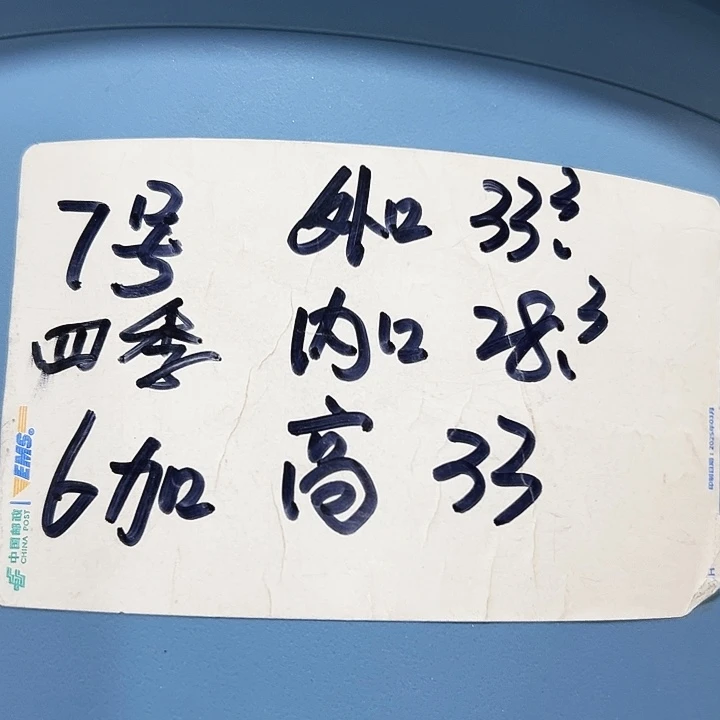 7号 外口 33.3
四季 内口 28.3
6加 高 33
EMS®
中国邮政
CHINA POST